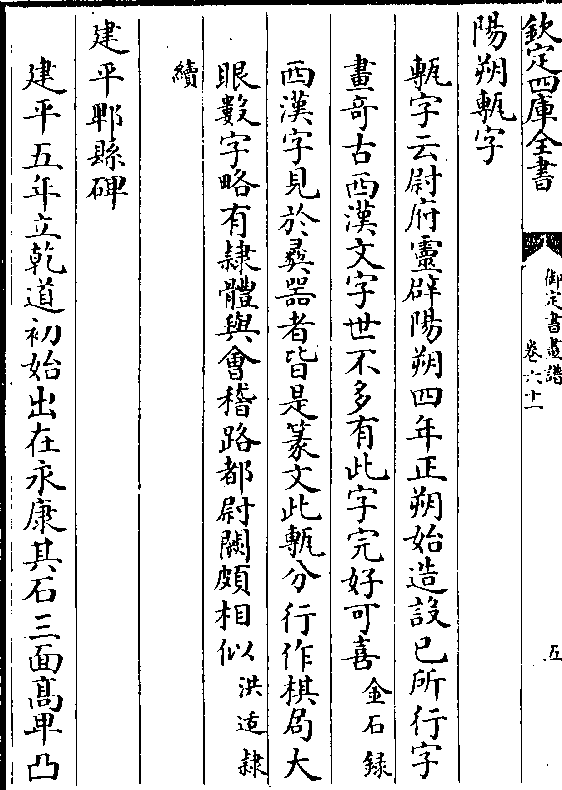 欽定四庫全書
御定書畫譜
卷六十一
五
陽朔甎字
甎字云尉府靈辟陽朔四年正朔始造設已所行字
畫奇古西漢文字世不多有此字完好可喜金石録
西漢字見於彞器者皆是篆文此甎分行作棋局大
眼數字略有隷體與會稽路都尉闕頗相似洪适隷
續
建平郫縣碑
建平五年立乾道初始出在永康其石三面高甲凸